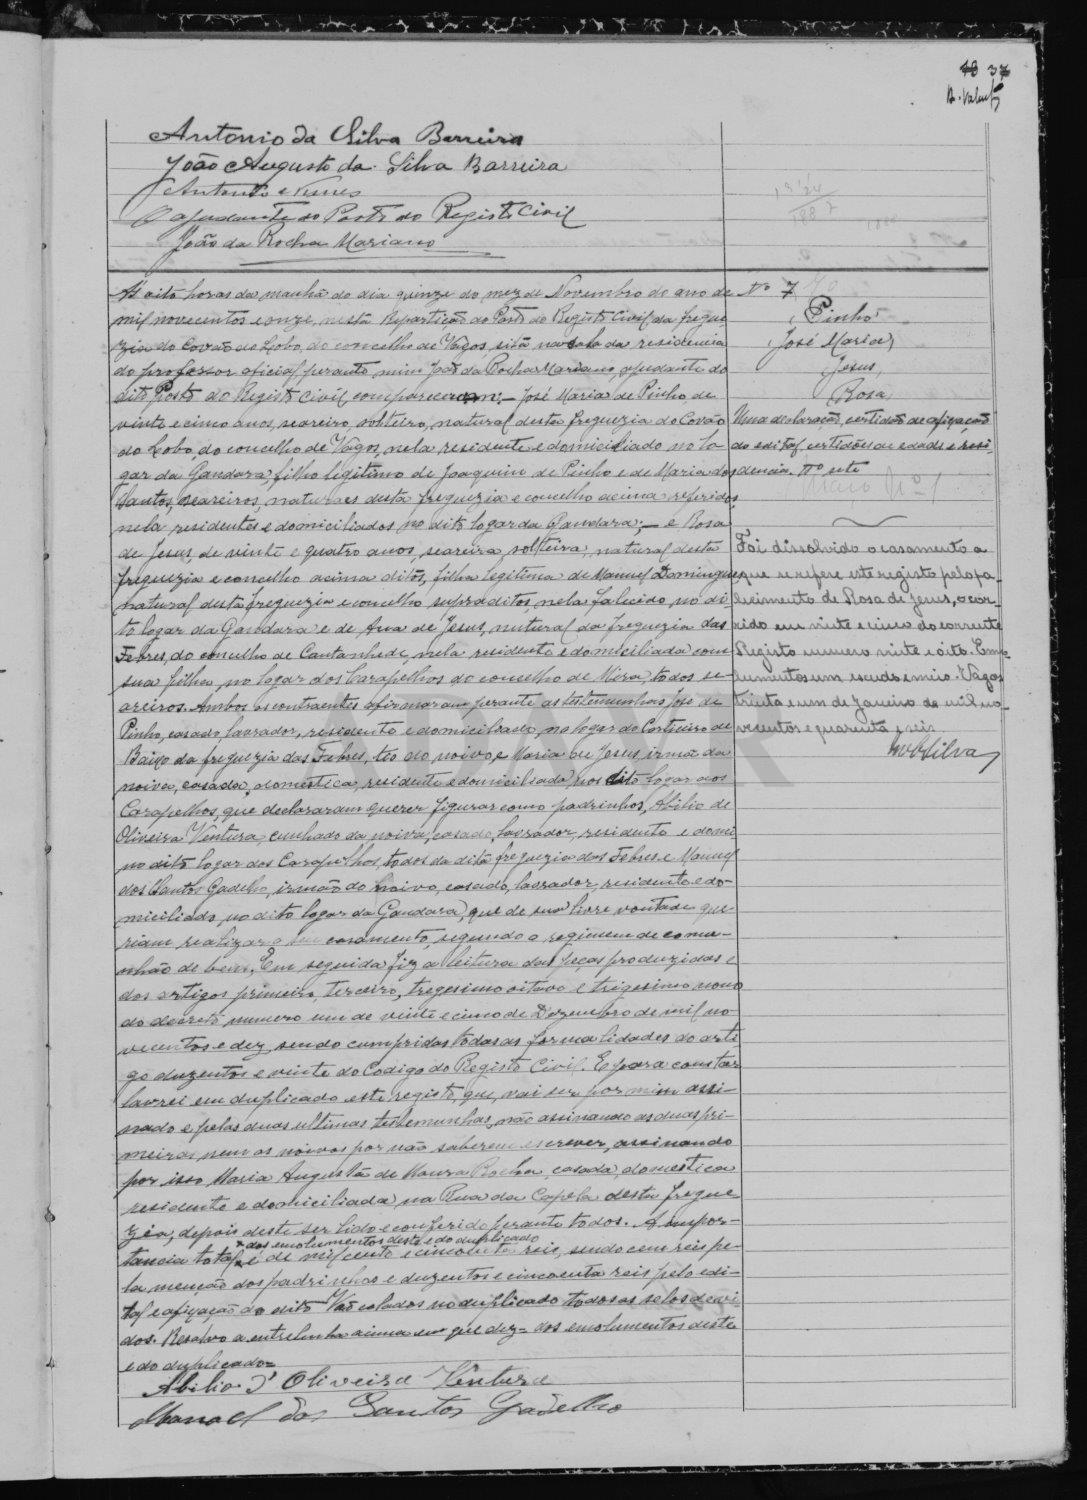 37
Antonio da Silva Barreira
João Augusto da Silva Barreira
Antonio Nunes
O ajudante do Posto do Registo Civil
João da Rocha Mariano
Ás oito horas da manhã do dia quinze do mez de Novembro do ano de
mil novecentos e onze, nesta Repartição do Posto do Registo Civil da fregue-
zia do Covão do Lobo, do concelho de Vagos, sita na sala da residencia
do professor oficial, perante mim João da Rocha Mariano, ajudante do
dito Posto do Registo Civil compareceram:— José Maria de Pinho, de
vinte e cinco anos, seareiro, solteiro, natural desta freguezia do Covão
do Lobo, do concelho de Vagos, nela residente e domiciliado no lo-
gar da Gandara, filho legitimo de Joaquim de Pinho e de Maria dos
Santos, seareiros, naturaes desta freguezia e concelho acima referidos,
nela residentes e domiciliados no dito logar da Gandara;— e Rosa
de Jesus, de vinte e quatro anos, seareira, solteira, natural desta
freguezia e concelho acima ditos, filha legitima de Manuel Domingues
natural desta freguezia e concelho supraditos, nela falecido no di-
to logar da Gandara e de Ana de Jesus, natural da freguezia das
Febres, do concelho de Cantanhede, nela residente e domiciliada com
sua filha, no logar dos Carapelhos do concelho de Mira, todos se-
areiros. Ambos os contraentes afirmaram perante as testemunhas José de
Pinho, casado, lavrador, residente e domiciliado, no logar do Corticeiro de
Baixo da freguezia das Febres, tio do noivo, e Maria de Jesus, irmã da
noiva, casada, domestica, residente e domiciliada no dito logar dos
Carapelhos, que declararam querer figurar como padrinhos, Abilio de
Oliveira Ventura, cunhado da noiva, casado, lavrador, residente e domi-
no dito logar dos Carapelhos, todos da dita freguezia das Febres e Manuel
dos Santos Gadelho, irmão do noivo, casado, lavrador, residente e do-
miciliado, no dito logar da Gandara, que de sua livre vontade que-
riam realizar o seu casamento, segundo o regimem de comu-
nhão de bens. Em seguida fiz a leitura das peças produzidas e
dos artigos primeiro, terceiro, tregesimo oitavo e trigesimo nono
do decreto numero um de vinte e cinco de Dezembro de mil no-
vecentos e dez, sendo cumpridas todas as formalidades do arti-
go duzentos e vinte do Codigo do Registo Civil. E para constar
lavrei em duplicado este registo, que, vai ser por mim assi-
nado e pelas duas ultimas testemunhas, não assinando as duas pri-
meiras nem os noivos por não saberem escrever, assinando
por isso Maria Augusta de Moura Rocha, casada, domestica
residente e domiciliada na Rua da Capela desta fregue-
zia, depois deste ser lido e conferido perante todos. A impor-
dos emolumentos deste e do duplicado
tancia total, é de mil cento e cincoenta reis, sendo cem reis pe-
la menção dos padrinhos e duzentos e cincoenta reis pelo edi-
tal e afixação do dito. Vão colados no duplicado todos os selos devi-
dos. Resalvo a entrelinha acima em que diz= dos emolumentos deste
e do duplicado=
Abilio d'Oliveira Ventura
Manoel dos Santos Gadelho
Nº 7
Pinho
José Maria
Jesus,
Rosa
Uma declaração, certidão de afixação
do edital, certidões de edade e resi-
dencia. Nº sete
Foi dissolvido o casamento a
que se refere este registo pelo fa-
lecimento de Rosa de Jesus, ocor-
rido em vinte e cinco do corrente
Registo numero vinte e oito. Emo-
lumentos um escudo e meio. Vagos
trinta e um de Janeiro de mil no-
vecentos e quarenta e seis
Silva